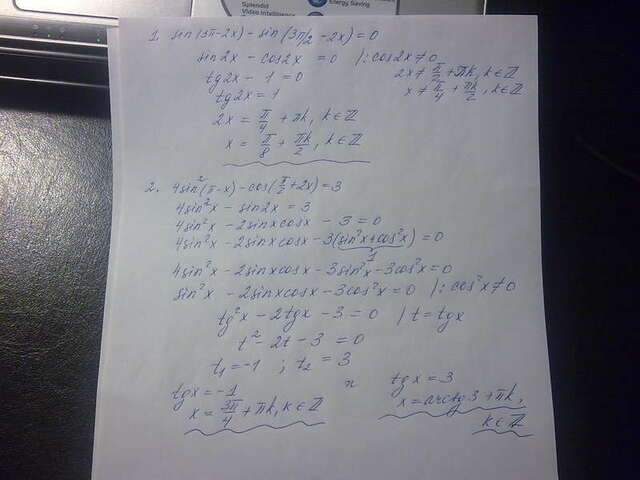 Splendid
Video Intelligence
Energy Saving
1. sin(3π-2x) - sin(3π/2 - 2x) = 0
sin2x - cos2x = 0 |: cos2x ≠ 0
tg2x - 1 = 0
2x ≠ π/2 + πk, k∈ℤ
tg2x = 1
x ≠ π/4 + πk/2, k∈ℤ
2x = π/4 + πk, k∈ℤ
x = π/8 + πk/2, k∈ℤ
2. 4sin²(π-x) - cos(π/2 + 2x) = 3
4sin²x - sin2x = 3
4sin²x - 2sinxcosx - 3 = 0
4sin²x - 2sinxcosx - 3(sin²x + cos²x) = 0
1
4sin²x - 2sinxcosx - 3sin²x - 3cos²x = 0
sin²x - 2sinxcosx - 3cos²x = 0 |: cos²x ≠ 0
tg²x - 2tgx - 3 = 0 | t = tgx
t² - 2t - 3 = 0
t₁ = -1 ; t₂ = 3
tgx = -1
x = 3π/4 + πk, k∈ℤ
tgx = 3
x = arctg3 + πk,
k∈ℤ